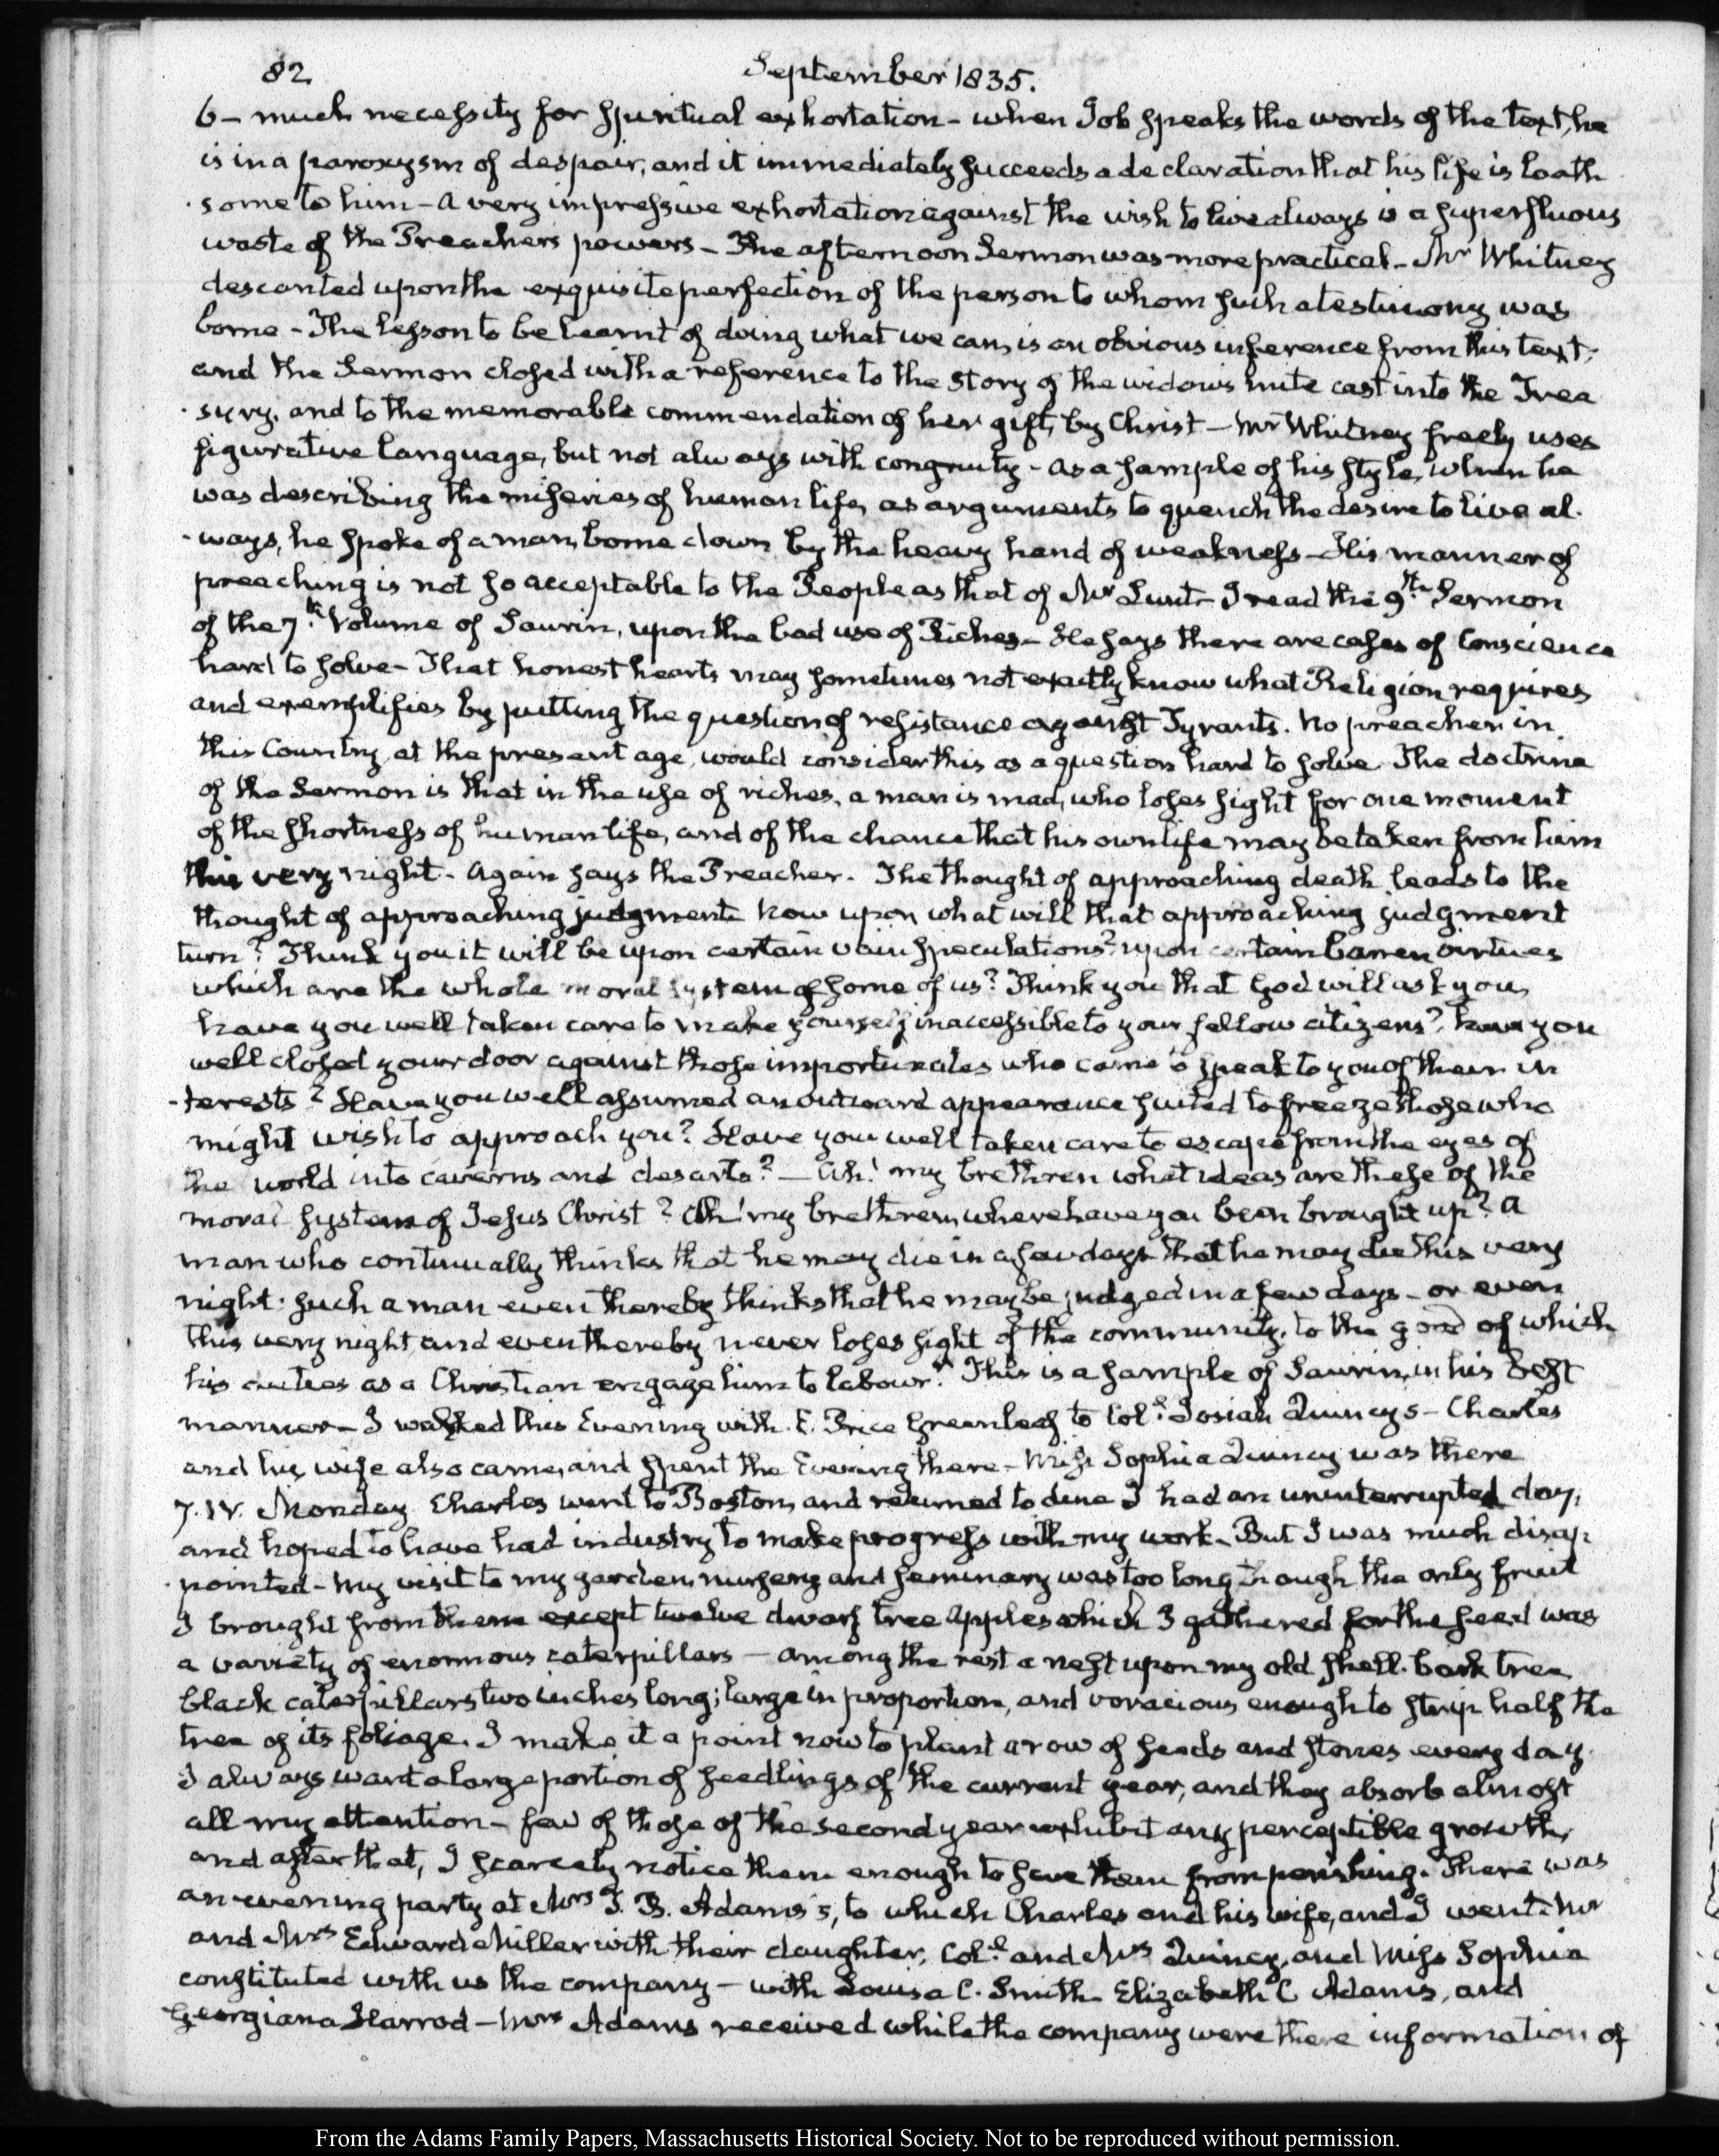 82
September 1835.
6 - much necessity for spiritual exhortation - when Job speaks the words of the text, he
is in a paroxysm of despair, and it immediately succeeds a declaration that his life is loath
-some to him - A very impressive exhortation against the wish to live always is a superfluous
waste of the Preachers powers - The afternoon Sermon was more practical - Mr Whitney
descanted upon the exquisite perfection of the person to whom such a testimony was
borne - The lesson to be learnt of doing what we can, is an obvious inference from this text;
and the Sermon closed with a reference to the story of the widow's mite cast into the Trea
-sury, and to the memorable commendation of her gift, by Christ - Mr Whitney freely uses
figurative language, but not always with congruity - As a sample of his style, when he
was describing the miseries of human life, as arguments to quench the desire to live al-
-ways, he spoke of a man, borne down by the heavy hand of weakness - His manner of
preaching is not so acceptable to the People as that of Mr Lunt - I read the 9th Sermon
of the 7th Volume of Saurin, upon the bad use of Riches - He says there are cases of Conscience
hard to solve - That honest hearts may sometimes not exactly know what Religion requires
and exemplifies by putting the question of resistance against Tyrants. No preacher in
this Country, at the present age, would consider this as a question hard to solve. The doctrine
of the Sermon is that in the use of riches, a man is mad, who loses sight for one moment
of the shortness of human life, and of the chance that his own life may be taken from him
this very night - Again says the Preacher - The thought of approaching death leads to the
thought of approaching judgment. Now upon what will that approaching judgment
turn? Think you it will be upon certain vain speculations? upon certain barren virtues
which are the whole moral system of some of us? Think you that God will ask you,
have you well taken care to make yourself inaccessible to your fellow citizens? have you
well closed your door against those importunates who came to speak to you of their in
-terests? Have you well assumed an outward appearance suited to freeze those who
might wish to approach you? Have you well taken care to escape from the eyes of
the world into caverns and desarts? - Ah! my brethren what ideas are these of the
moral system of Jesus Christ? Ah! my brethren, where have you been brought up? A
man who continually thinks that he may die in a few days that he may die this very
night: such a man even thereby thinks that he may be judged in a few days - or even
this very night and even thereby never loses sight of the community, to the good of which
his duties as a Christian engage him to labour." This is a sample of Saurin, in his best
manner - I walked this Evening with E. Price Greenleaf to Col. Josiah Quincy's - Charles
and his wife also came, and spent the Evening there - Miss Sophia Quincy was there
7. IV. Monday Charles went to Boston, and returned to dine I had an uninterrupted day,
and hoped to have had industry to make progress with my work - But I was much disap
-pointed - My visit to my garden, nursery and seminary was too long though the only fruit
I brought from them except twelve dwarf tree apples which I gathered for the seed was
a variety of enormous caterpillars - among the rest a nest upon my old shell-bark tree
black caterpillars two inches long; large in proportion, and voracious enough to strip half the
tree of its foliage. I make it a point now to plant a row of seeds and stones every day.
I always want a large portion of seedlings of the current year, and they absorb almost
all my attention - few of those of the second year exhibit any perceptible growth,
and after that, I scarcely notice them enough to save them from perishing. There was
an evening party at Mrs T. B. Adams's, to which Charles and his wife, and I went. Mr
and Mrs Edward Miller with their daughter, Col. and Mrs Quincy, and Miss Sophia
constituted with us the company - with Louisa C. Smith - Elizabeth C Adams, and
Georgiana Harrod - Mrs Adams received while the company were there information of
From the Adams Family Papers, Massachusetts Historical Society. Not to be reproduced without permission.